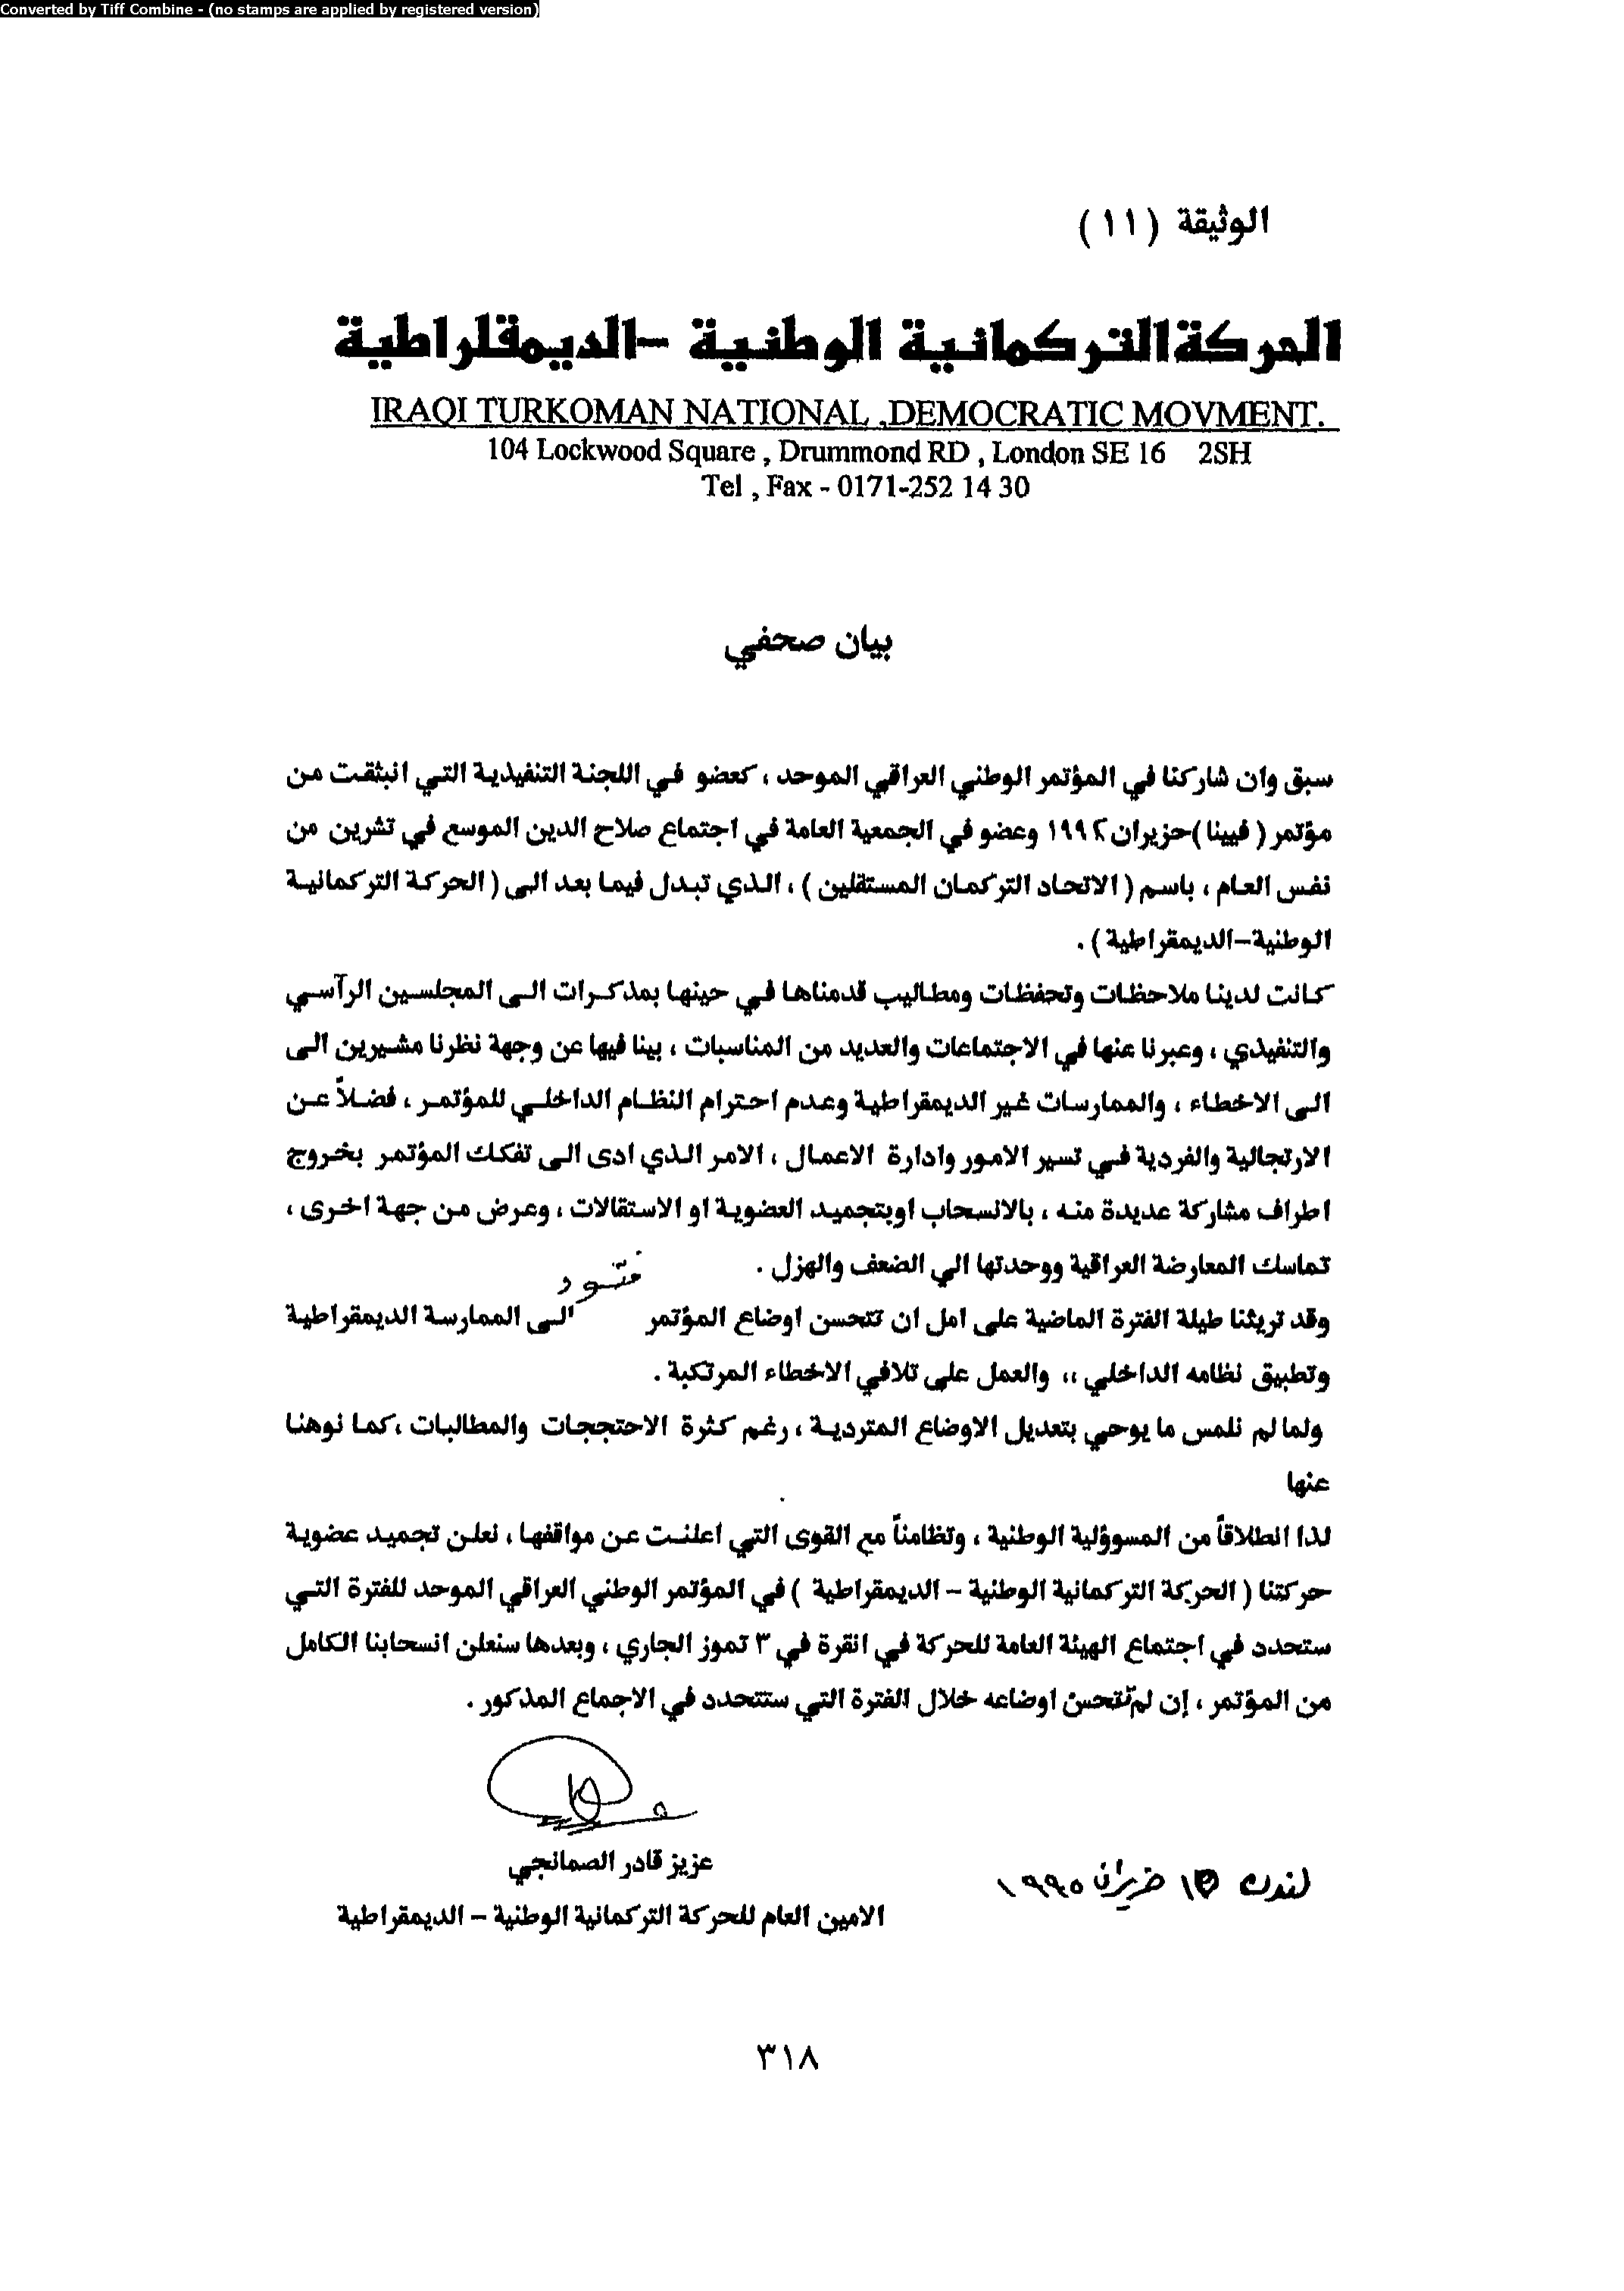 Converted by Tiff Combine - (no stamps are applied by registered version)
الوثيقة (١١)
الحركة التركمانية الوطنية -الديمقراطية
IRAQI TURKOMAN NATIONAL ,DEMOCRATIC MOVMENT.
104 Lockwood Square , Drummond RD , London SE 16 2SH
Tel , Fax - 0171-252 14 30
بيان صحفي
سبق وان شاركنا في المؤتمر الوطني العراقي الموحد ، كعضو في اللجنة التنفيذية التي انبثقت من
مؤتمر ( فيينا )حزيران ١٩٩٢ وعضو في الجمعية العامة في اجتماع صلاح الدين الموسع في تشرين من
نفس العام ، باسم ( الاتحاد التركمان المستقلين ) ، الذي تبدل فيما بعد الى ( الحركة التركمانية
الوطنية-الديمقراطية ) .
كانت لدينا ملاحظات وتحفظات ومطاليب قدمناها في حينها بمذكرات الى المجلسين الرآسي
والتنفيذي ، وعبرنا عنها في الاجتماعات والعديد من المناسبات ، بينا فيها عن وجهة نظرنا مشيرين الى
الى الاخطاء ، والممارسات غير الديمقراطية وعدم احترام النظام الداخلي للمؤتمر ، فضلاً عن
الارتجالية والفردية في تسير الامور وادارة الاعمال ، الامر الذي ادى الى تفكك المؤتمر بخروج
اطراف مشاركة عديدة منه ، بالانسحاب اوبتجميد العضوية او الاستقالات ، وعرض من جهة اخرى ،
تماسك المعارضة العراقية ووحدتها الي الضعف والهزل .
وقد تريثنا طيلة الفترة الماضية على امل ان تتحسن اوضاع المؤتمر الى الممارسة الديمقراطية
وتطبيق نظامه الداخلي ،، والعمل على تلافي الاخطاء المرتكبة .
ولما لم نلمس ما يوحي بتعديل الاوضاع المتردية ، رغم كثرة الاحتججات والمطالبات ،كما نوهنا
عنها
لذا انطلاقاً من المسوؤلية الوطنية ، وتظامناً مع القوى التي اعلنت عن مواقفها ، نعلن تجميد عضوية
حركتنا ( الحركة التركمانية الوطنية - الديمقراطية ) في المؤتمر الوطني العراقي الموحد للفترة التي
ستحدد في اجتماع الهيئة العامة للحركة في انقرة في ٣ تموز الجاري ، وبعدها سنعلن انسحابنا الكامل
من المؤتمر ، إن لم تتحسن اوضاعه خلال الفترة التي ستتحدد في الاجماع المذكور .
عزيز قادر الصمانجي
لندن ١٥ حزيران ١٩٩٥
الامين العام للحركة التركمانية الوطنية - الديمقراطية
٣١٨